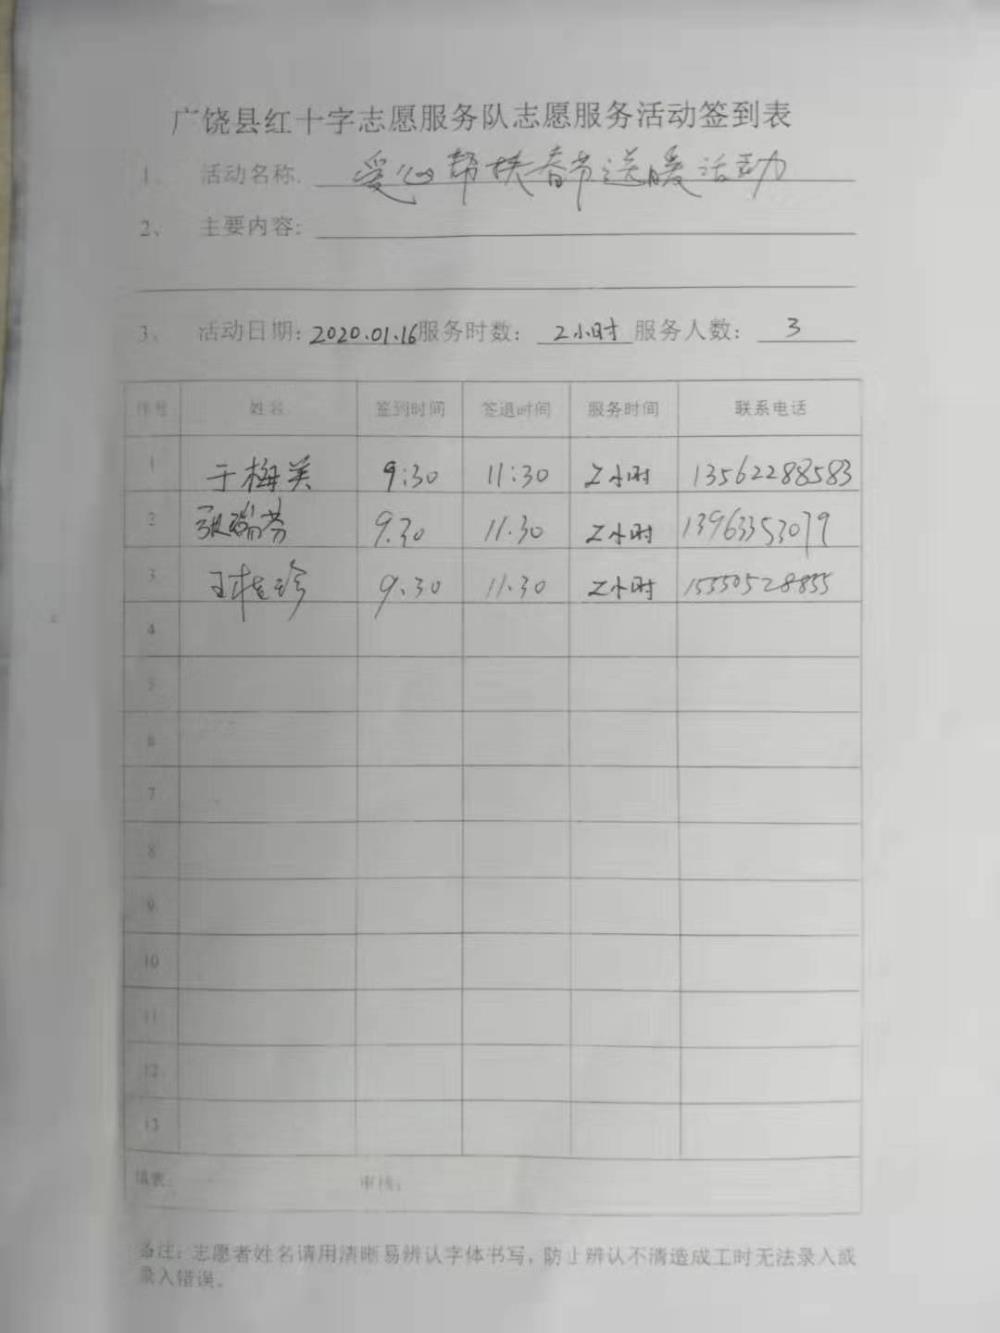 广饶县红十字志愿服务队志愿服务活动签到表
1、 活动名称: 爱心帮扶春节送暖活动
2、 主要内容:
3、 活动日期: 2020.01.16 服务时数: 2小时 服务人数: 3
序号 姓名 签到时间 签退时间 服务时间 联系电话
1 于梅美 9:30 11:30 2小时 13562288583
2 张瑞芬 9.30 11.30 2小时 13963353079
3 王桂珍 9.30 11.30 2小时 15550528855
4
5
6
7
8
9
10
11
12
13
填表: 审核:
备注: 志愿者姓名请用清晰易辨认字体书写, 防止辨认不清造成工时无法录入或
录入错误。